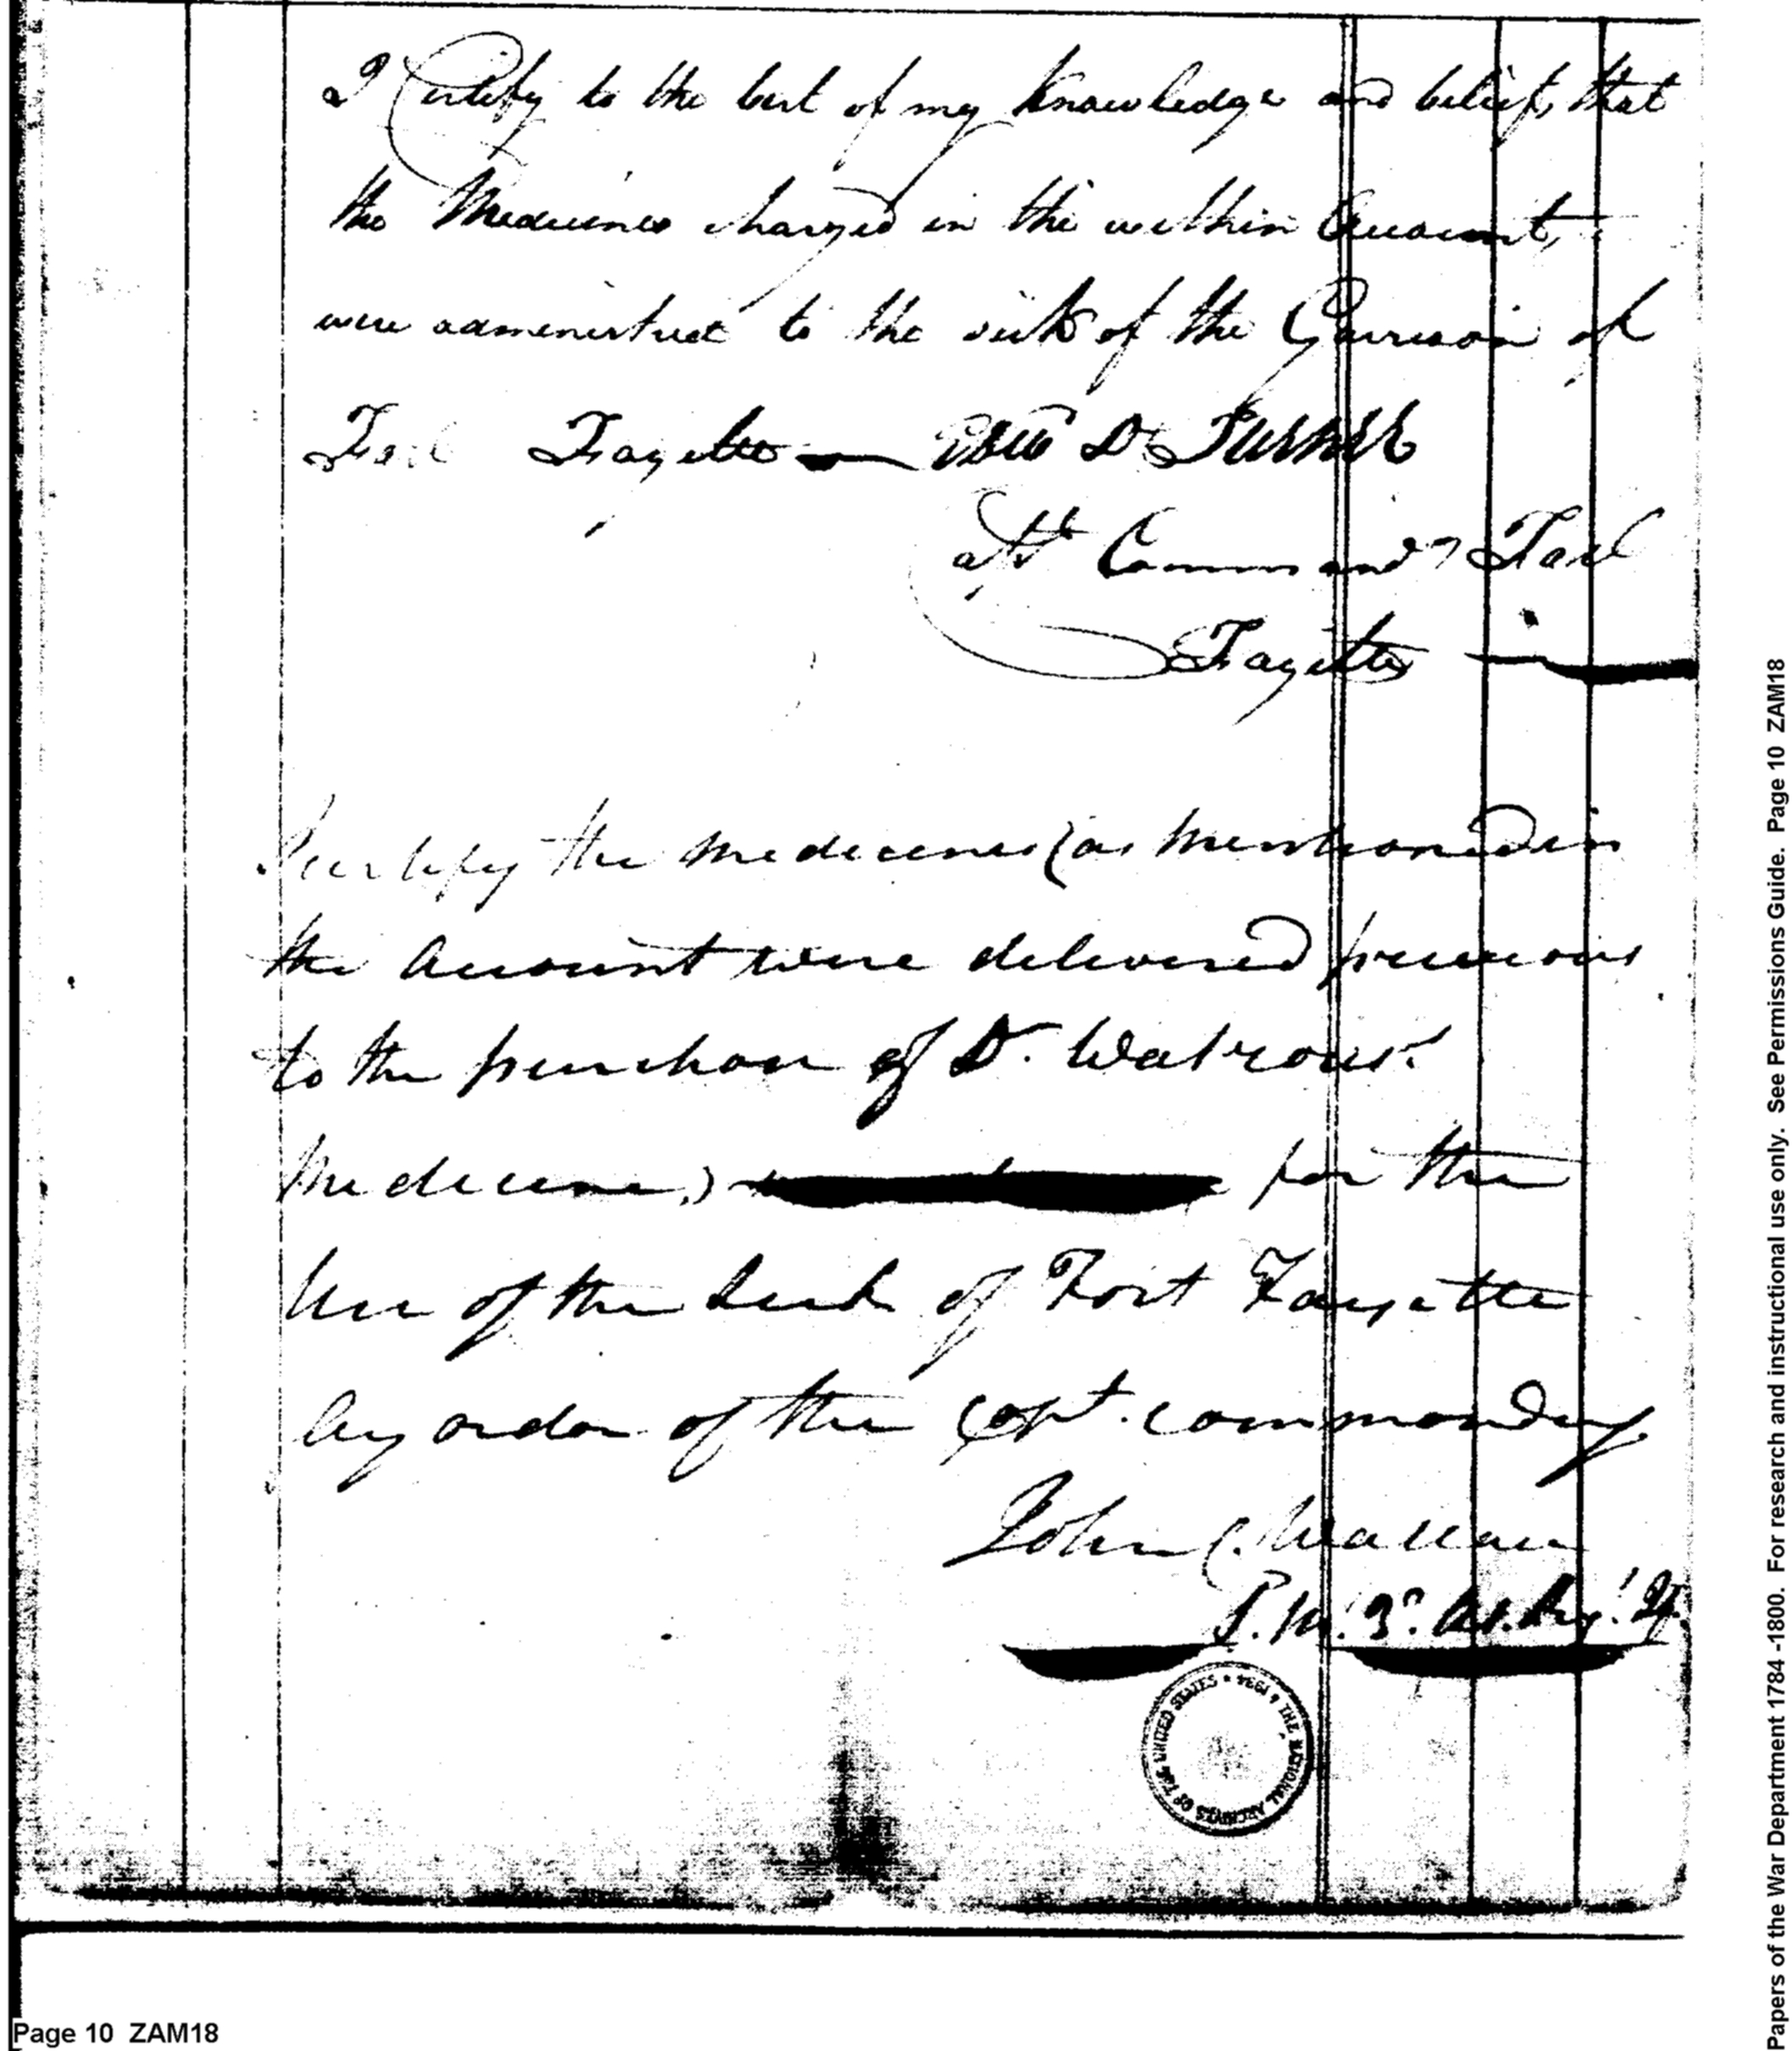 I Certify to the best of my knowledge and belief, that
the Medicines charged in the within Account,
were administred to the sick of the Garrison of
Fort Fayette — Edw D Turner
Capt Command Fort
Fayette
I certify the medicenes (as mentioned in
the Account were delivered previous
to the purchase of Dr. Watrous
Medecine,) for the
Use of the Sick of Fort Fayette
by order of the Capt. commanding
John C. Wallace
P.M. 3d
THE NATIONAL ARCHIVES OF THE UNITED STATES • 1934 •
Page 10 ZAM18
Papers of the War Department 1784-1800. For research and instructional use only. See Permissions Guide. Page 10 ZAM18